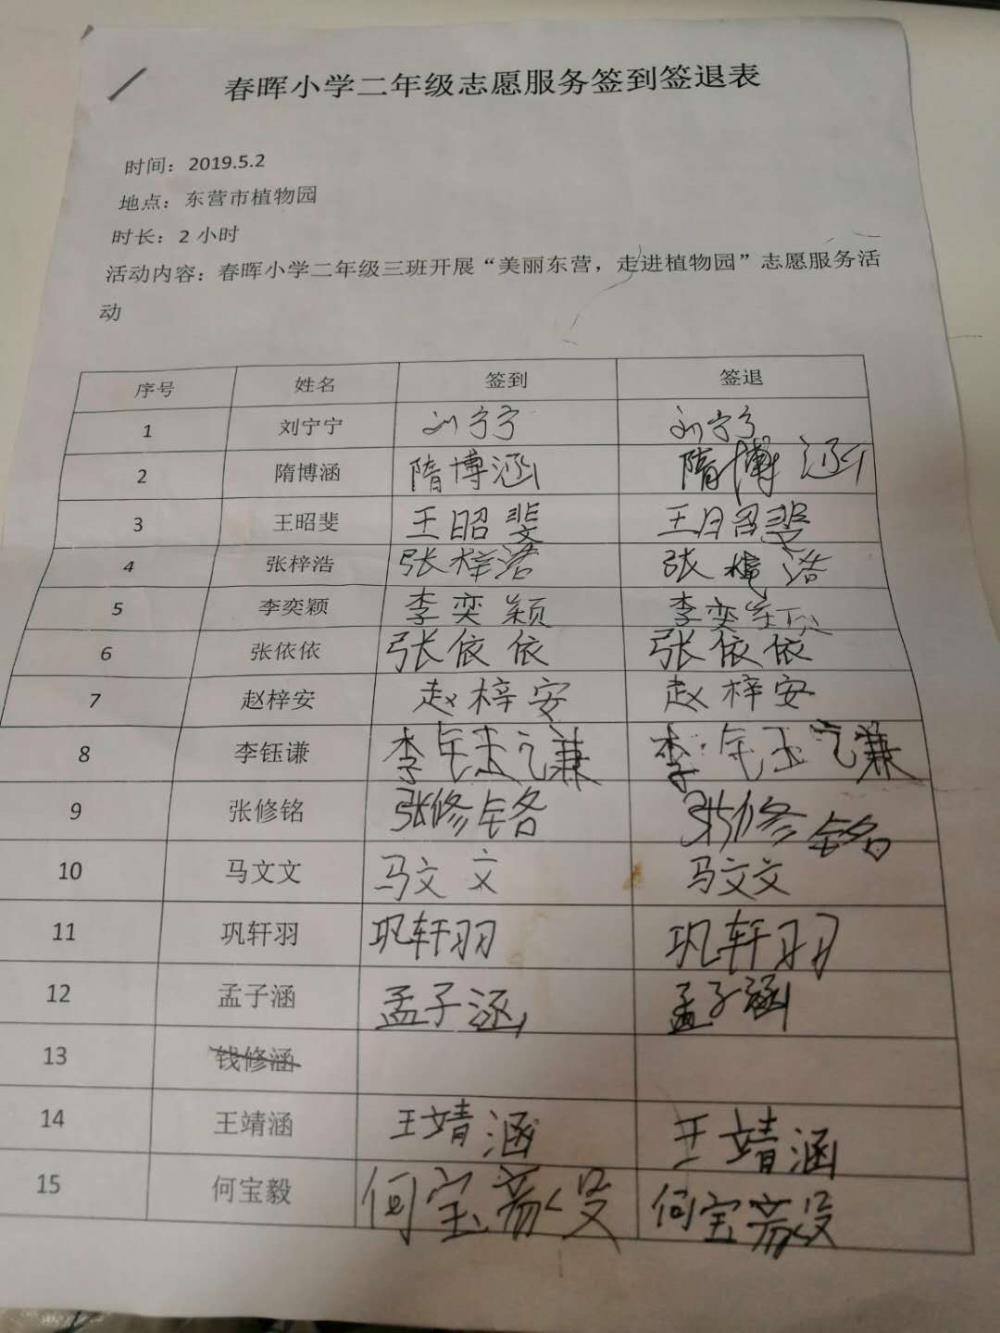 春晖小学二年级志愿服务签到签退表
时间：2019.5.2
地点：东营市植物园
时长：2 小时
活动内容：春晖小学二年级三班开展“美丽东营，走进植物园”志愿服务活
动
序号 姓名 签到 签退
1 刘宁宁 刘宁宁 刘宁宁
2 隋博涵 隋博涵 隋博涵
3 王昭斐 王昭斐 王昭斐
4 张梓浩 张梓浩 张梓浩
5 李奕颖 李奕颖 李奕颖
6 张依依 张依依 张依依
7 赵梓安 赵梓安 赵梓安
8 李钰谦 李钰谦 李钰谦
9 张修铭 张修铭 张修铭
10 马文文 马文文 马文文
11 巩轩羽 巩轩羽 巩轩羽
12 孟子涵 孟子涵 孟子涵
13 钱修涵
14 王靖涵 王靖涵 王靖涵
15 何宝毅 何宝毅 何宝毅